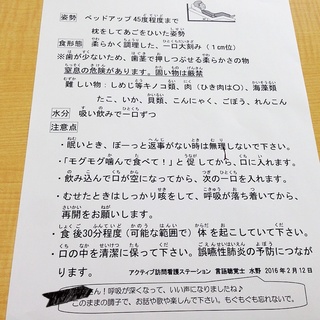 姿勢 ベッドアップ45度程度まで
枕をしてあごをひいた姿勢
食形態 柔らかく調理した、一口大刻み（1cm位）
※歯が少ないため、歯茎で押しつぶせる柔らかさの物
窒息の危険があります。固い物は厳禁
難しい物：しめじ等キノコ類、肉（ひき肉は○）、海藻類
たこ、いか、貝類、こんにゃく、ごぼう、れんこん
水分 吸い飲みで一口ずつ
注意点
・眠いとき、ぼーっと返事がない時は無理しないで下さい。
・「モグモグ噛んで食べて！」と促してから、口に入れます。
・飲み込んで口が空になってから、次の一口を入れます。
・むせたときはしっかり咳をして、呼吸が落ち着いてから、
再開をお願いします。
・食後30分程度（可能な範囲で）体を起こしていて下さい。
・口の中を清潔に保って下さい。誤嚥性肺炎の予防につなが
ります。
アクティブ訪問看護ステーション 言語聴覚士 水野 2016年2月12日
さん！呼吸が深くなって、いい声になりましたね♪
このままの調子で、お話や歌や楽しんで下さい。もぐもぐも忘れないで。